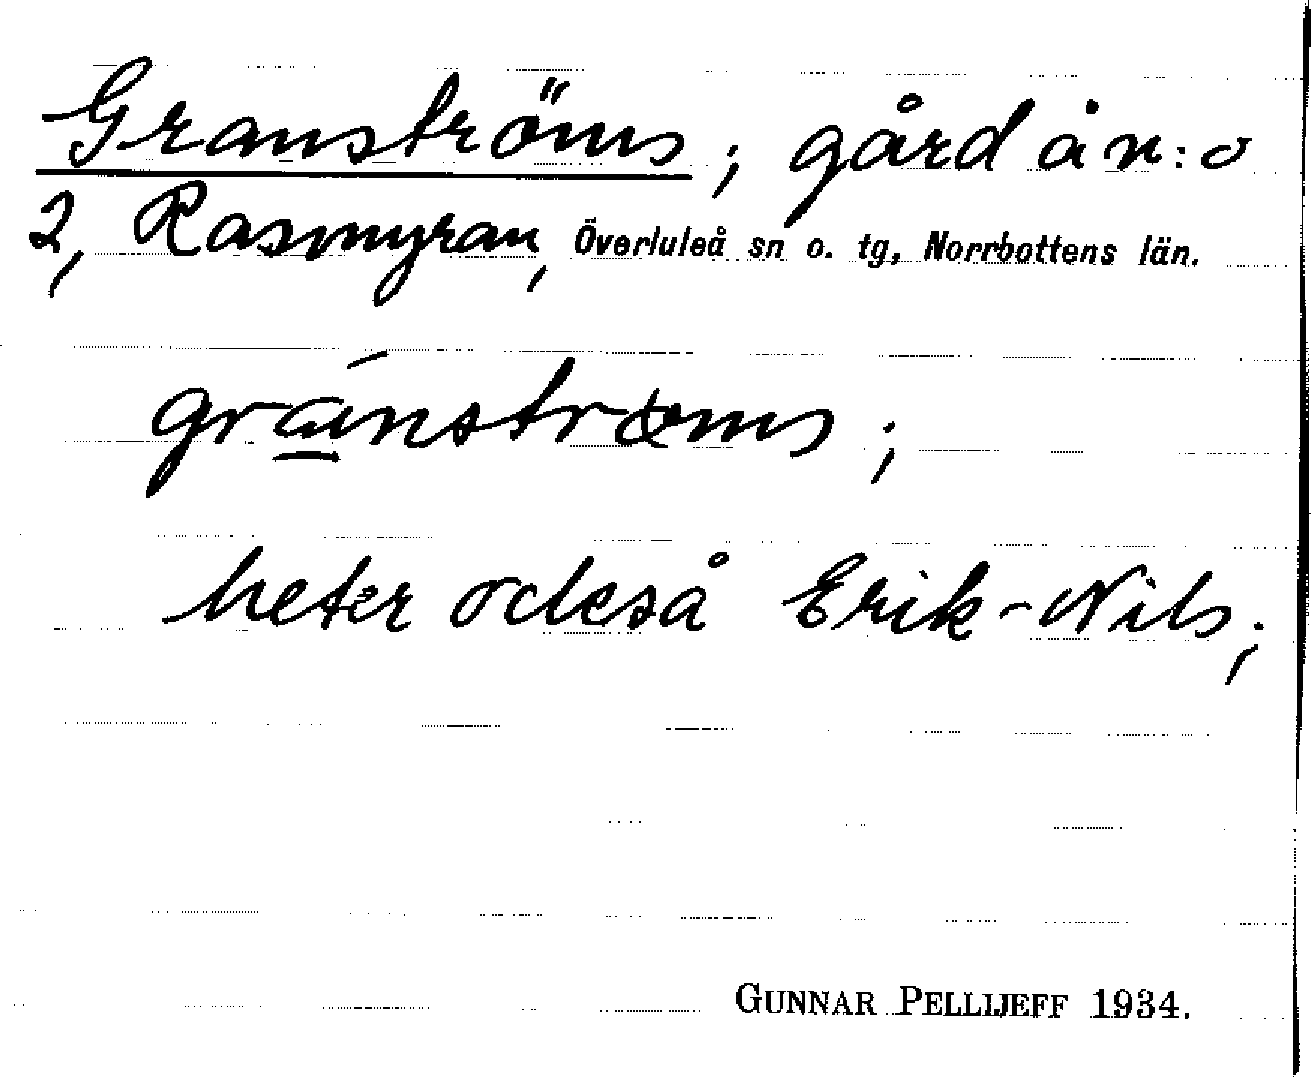 Granströms; gård å n:o
2, Rasmyran, Överluleå sn o. tg, Norrbottens län.
gránstrœms;
heter också Erik-Nils;
GUNNAR PELLIJEFF 1934.